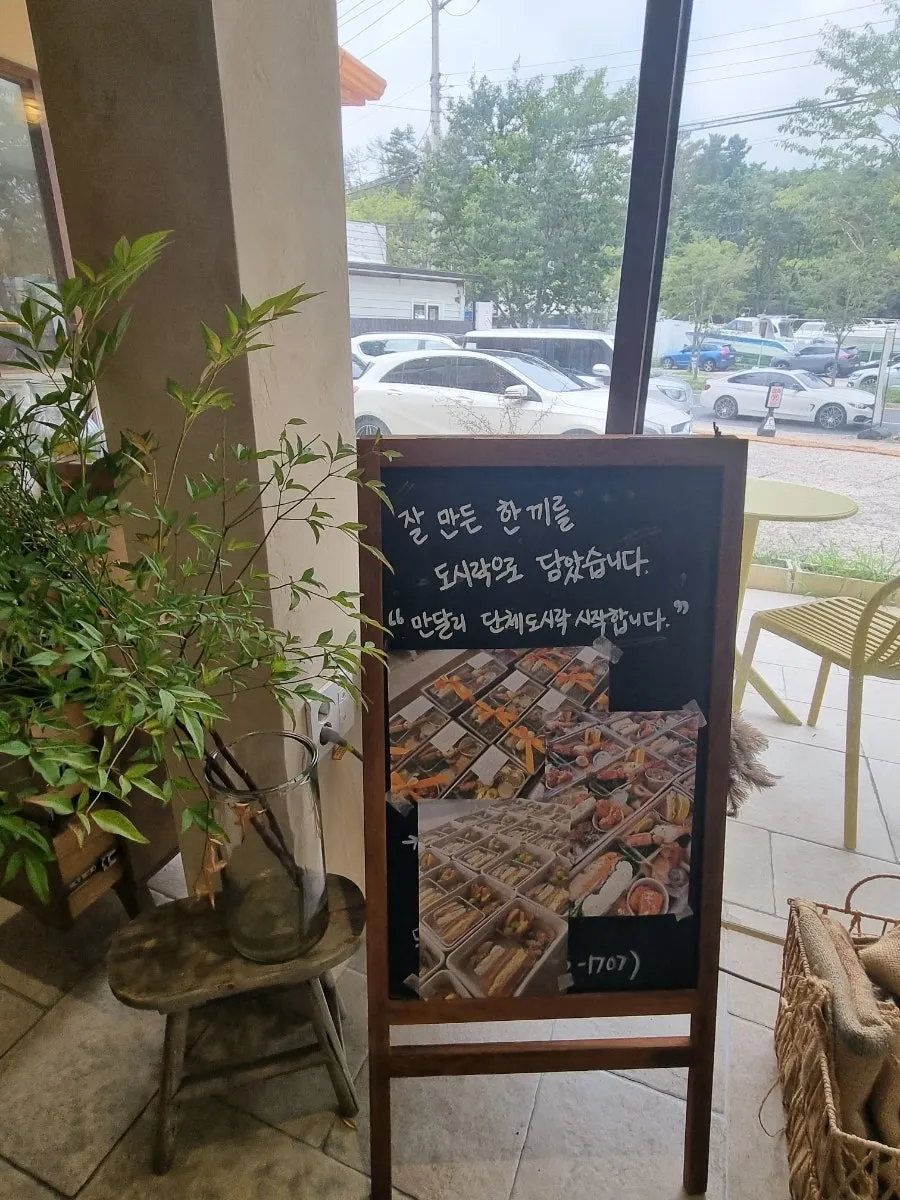 잘 만든 한 끼를
도시락으로 담았습니다.
"만달리 단체도시락 시작합니다."
-1707)